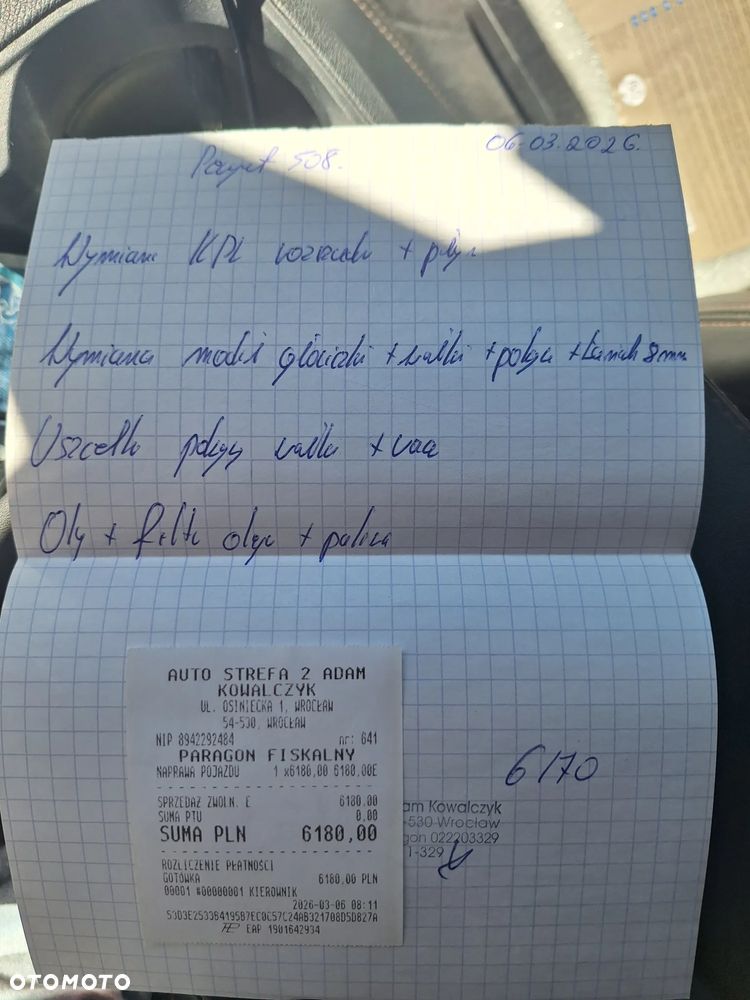 06.03.2026.
Peugeot 508.
Wymiana KPL rozrządu + płyn
Wymiana moduł głowicki + wałki + pokrywa + łańcuch 8mm
Uszczelka pokrywy wałki +
Olej + filtr oleju + paliwa
AUTO STREFA 2 ADAM
KOWALCZYK
UL. OSINIECKA 1, WROCŁAW
54-530, WROCŁAW
NIP 8942292484 nr: 641
PARAGON FISKALNY
NAPRAWA POJAZDU 1 x6180,00 6180,00E
SPRZEDAŻ ZWOLN. E 6180,00
SUMA PTU 0,00
SUMA PLN 6180,00
ROZLICZENIE PŁATNOŚCI
GOTÓWKA 6180,00 PLN
00001 #00000001 KIEROWNIK
2026-03-06 08:11
53D3E2533B4195B7EC0C57C24AB321708D5D827A
EAP 1901642934
6170
am Kowalczyk
-530 Wrocław
gon 022203329
1-329
OTOMOTO